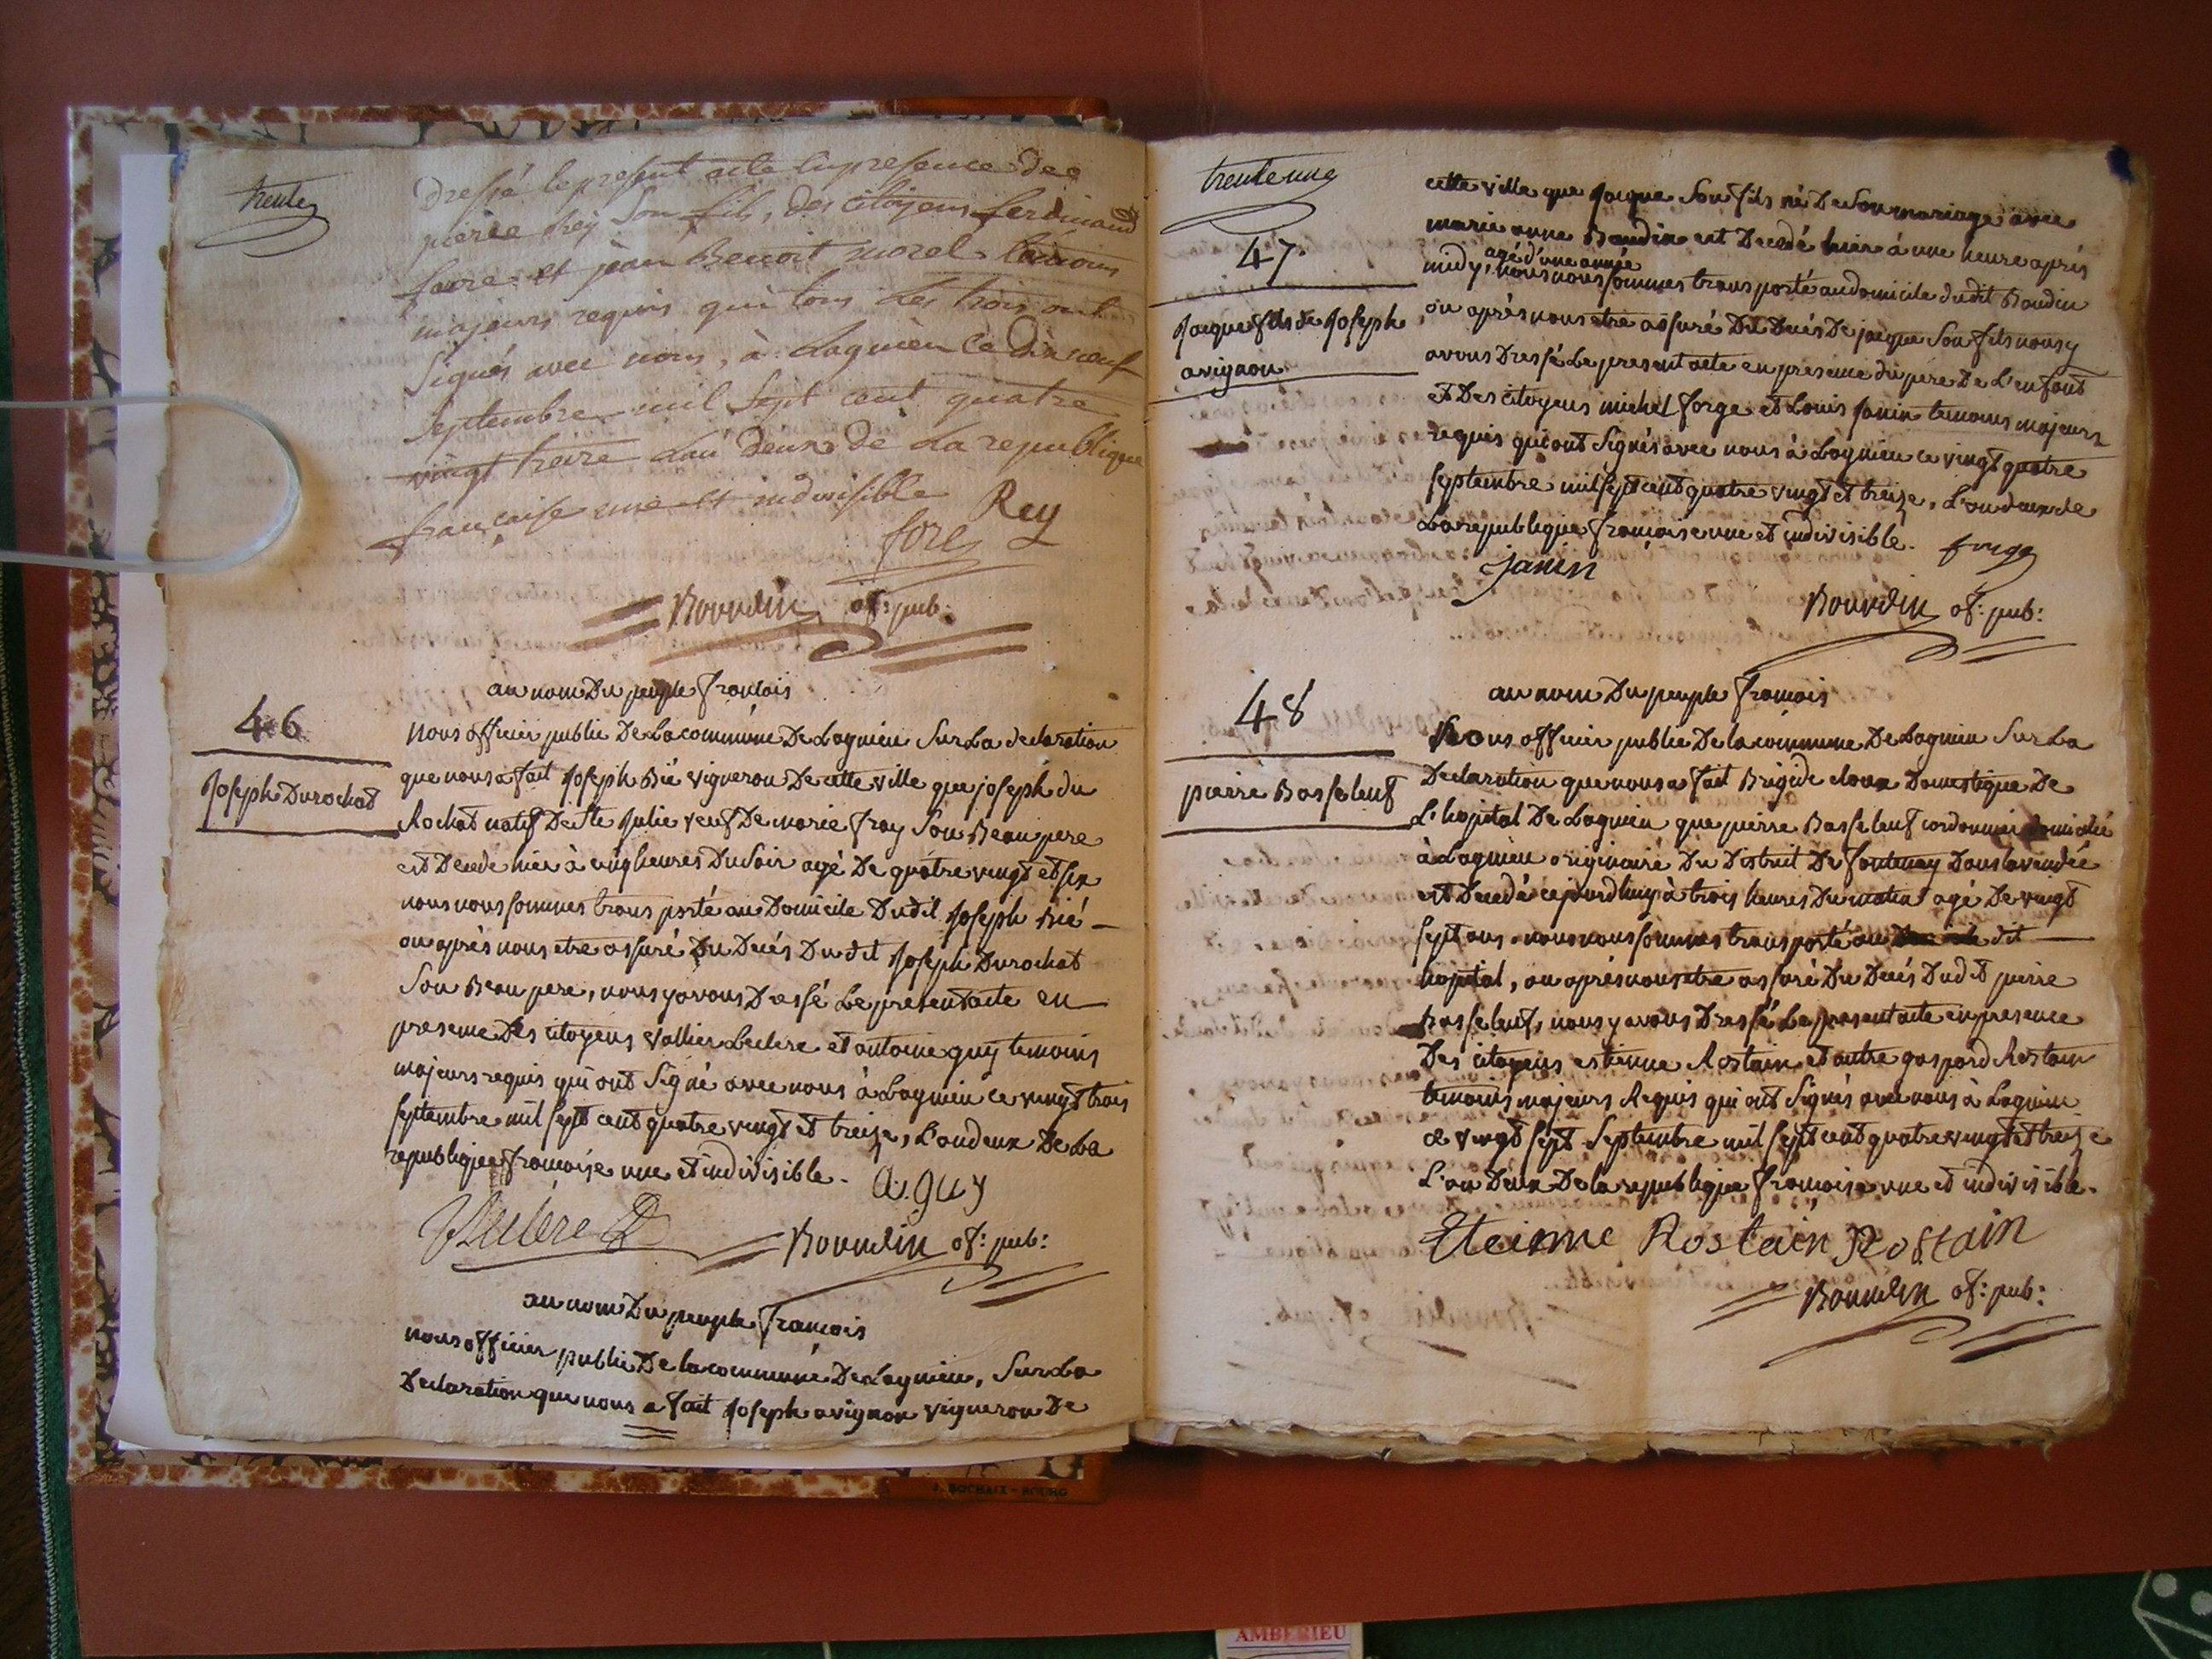 trente
dressé le present acte en presence de
pierre Rey son fils, des citoyens ferdinand
favre et jean Benoit morel temoins
majeurs requis qui tous les trois ont
signés avec nous, à Lagnieu ce dix neuf
septembre mil sept cent quatre
vingt treize L'an deux de La republique
française une et indivisible Rey
fore
Bourdin of: pub:
au nom Du peuple francois
46
Joseph Durochat
nous officier public De La commune De Lagnieu Sur La declaration
que nous a fait Joseph Bié vigneron De cette ville que joseph du
Rochat natif De ste Julie veuf De marie fray Son Beau pere
est Decedé hier à cinq heures Du Soir agé De quatre vingt et six
nous nous sommes transporté au Domicile Dudit Joseph Bié
ou après nous etre assuré Du Decés Dudit Joseph Durochat
Son Beau pere, nous y avons Dressé Le present acte en
presence Des citoyens vallier Leclerc et antoine guy temoins
majeurs requis qui ont Signé avec nous à Lagnieu ce vingt trois
septembre mil sept cent quatre vingt et treize, L'an deux De La
republique francoise une et indivisible. a. guy
VLeclerc
Bourdin of: pub:
au nom Du peuple francois
nous officier public De la commune De Lagnieu, Sur La
Declaration que nous a fait Joseph avignon vigneron De
trente une
cette ville que Jacque Son fils né De Son mariage avec
marie anne Baudin est Decedé hier à une heure après
agé d'une année
midy, nous nous sommes transporté au domicile dudit Baudin
47
Jacque fils de Joseph
avignon
ou après nous etre assuré Du Decés De jacque Son fils nous y
avons Dressé Le present acte en presence du pere De L'enfant
et Des citoyens michel forge et Louis Janin temoins majeurs
requis qui ont Signés avec nous à Lagnieu ce vingt quatre
septembre mil sept cent quatre vingt et treize, L'an deux de
La republique francoise une et indivisible. forge
janin
Bourdin of: pub:
48
pierre Basseleuf
au nom Du peuple francois
Nous officier public De la commune De Lagnieu Sur La
Declaration que nous a fait Brigide cloux Domestique De
L'hopital De Lagnieu que pierre Basseleuf cordonnier domicilié
à Lagnieu originaire Du District De fontenay Dans la vendée
est Decedé ce jourd'huy à trois heures Du matin agé De vingt
sept ans. nous nous sommes transporté au dit
hopital, ou après nous etre assuré Du Decés Dudit pierre
Basseleuf, nous y avons Dressé Le present acte en presence
Des citoyens estienne Rostain et autre gaspard Rostain
temoins majeurs Requis qui ont Signés avec nous à Lagnieu
ce vingt sept Septembre mil sept cent quatre vingt et treize
L'an Deux De la republique francoise une et indivisible.
Eteinne Rostain Rostain
Bourdin of: pub:
J. ROCHAIX - BOURG
AMBERIEU